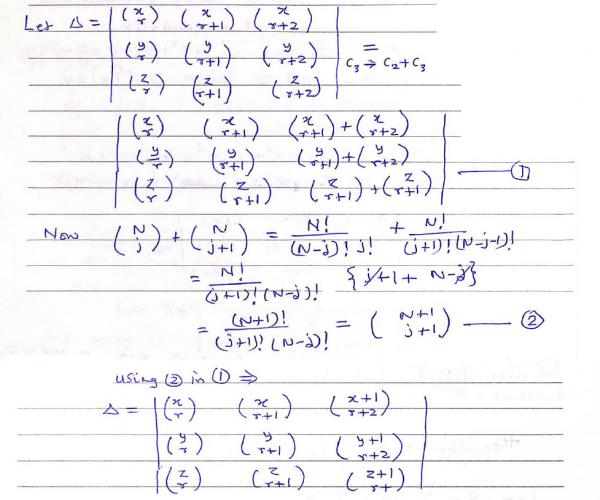 Let Δ = | (x r) (x r+1) (x r+2) |
| (y r) (y r+1) (y r+2) | = C₃→ C₂+C₃
| (z r) (z r+1) (z r+2) |
| (x r) (x r+1) (x r+1)+(x r+2) |
| (y r) (y r+1) (y r+1)+(y r+2) | —— ①
| (z r) (z r+1) (z r+1)+(z r+1) |
Now (N j) + (N j+1) = N!/(N-j)! j! + N!/(j+1)! (N-j-1)!
= N!/(j+1)! (N-j)! {j+1 + N-j}
= (N+1)!/(j+1)! (N-j)! = (N+1 j+1) —— ②
using ② in ① ⇒
Δ = | (x r) (x r+1) (x+1 r+2) |
| (y r) (y r+1) (y+1 r+2) |
| (z r) (z r+1) (z+1 r+) |